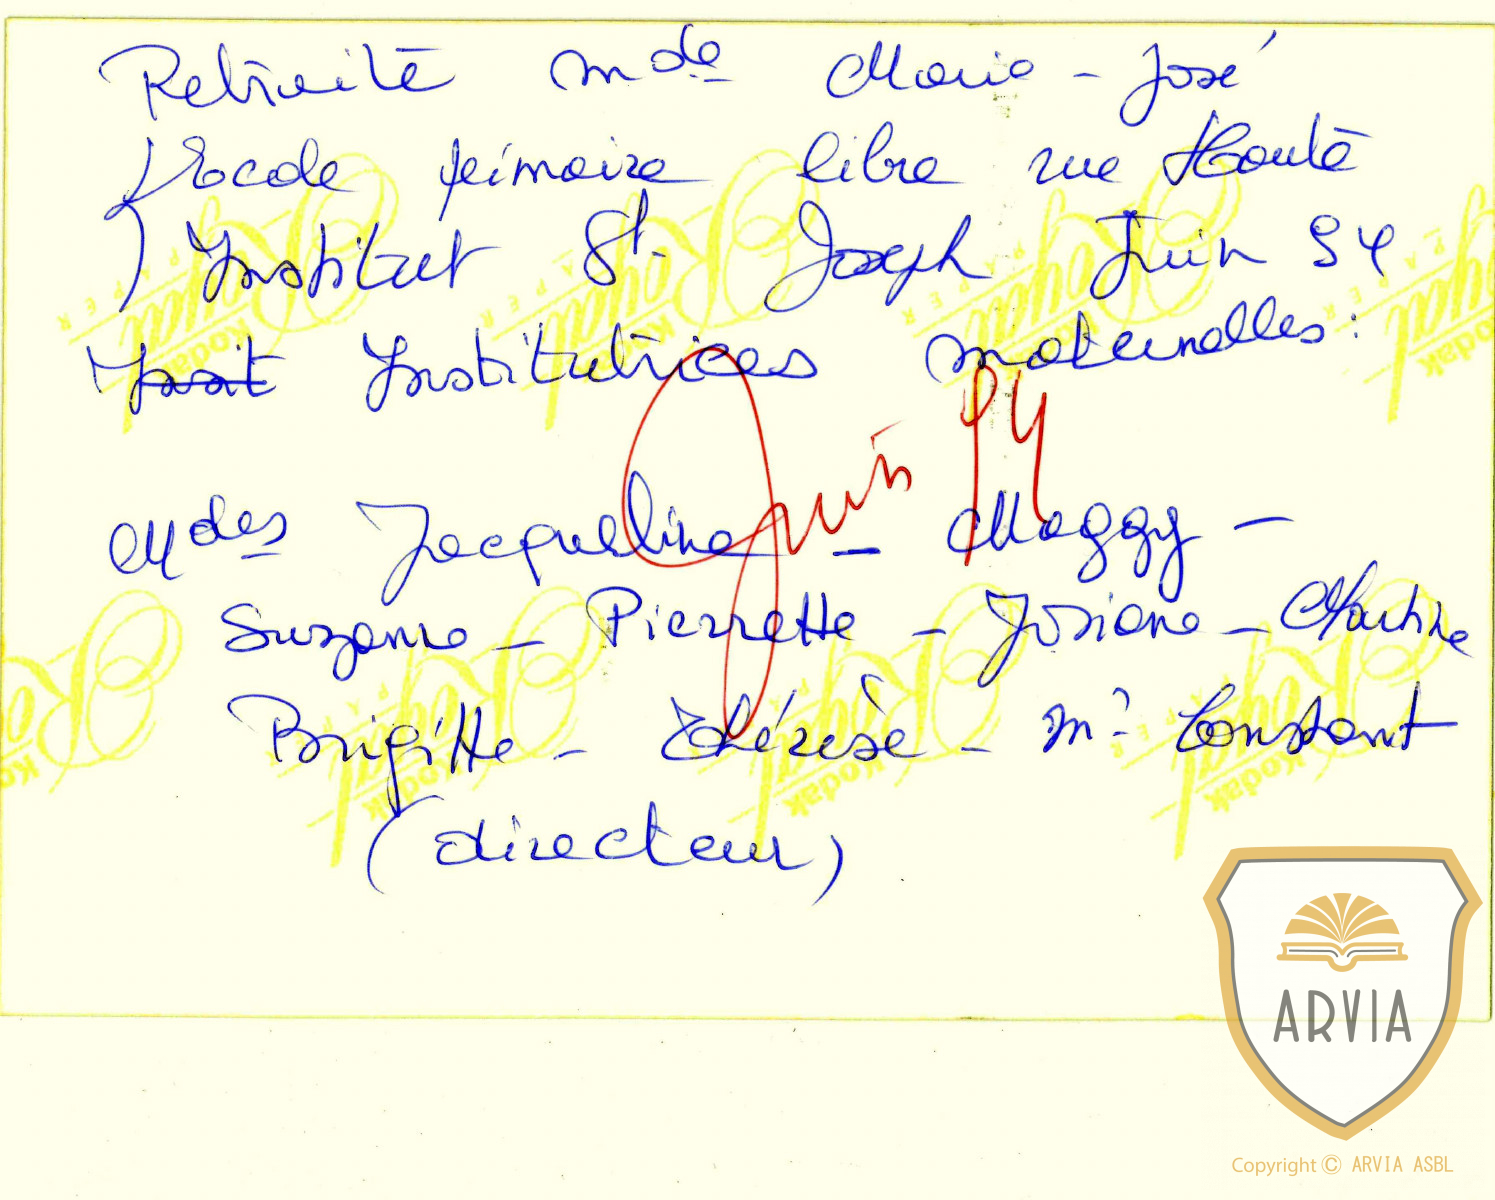 Retraite Mde Marie - José
Ecole primaire libre rue Haute
Institut St. Joseph Juin 94
Institutrices maternelles :
Juin 94
Mdes Jacqueline - Maggy -
Suzanne - Pierrette - Josiane - Martine
Brigitte - Thérèse - Mr Constant
(directeur)
Kodak
Royal
PAPER
ARVIA
Copyright © ARVIA ASBL